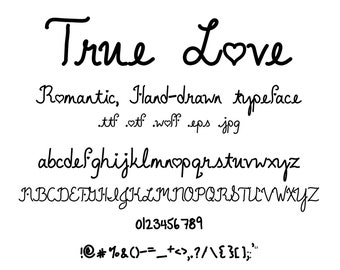 True Love
Romantic, Hand-drawn typeface
.ttf .otf .woff .eps .jpg
abcdefghijklmnopqrstuvwxyz
ABCDEFGHIJKLMNOPQRSTUVWXYZ
0123456789
!@#%&()-=_+<>,.?/\{}[];:'"